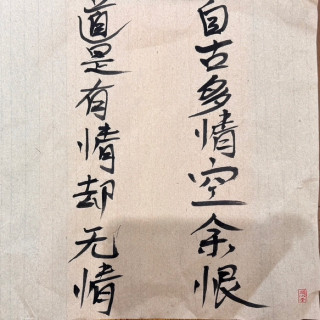 自古多情空余恨
道是有情却无情